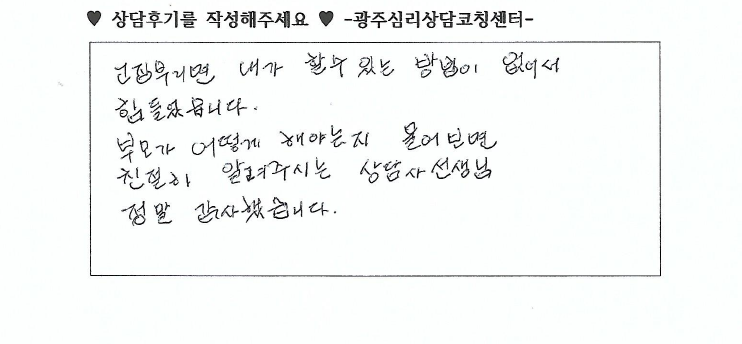 ♥ 상담후기를 작성해주세요 ♥ -광주심리상담코칭센터-
고집부리면 내가 할수 있는 방법이 없어서
힘들었습니다.
부모가 어떻게 해야는지 물어보면
친절히 알려주시는 상담사선생님
정말 감사했습니다.